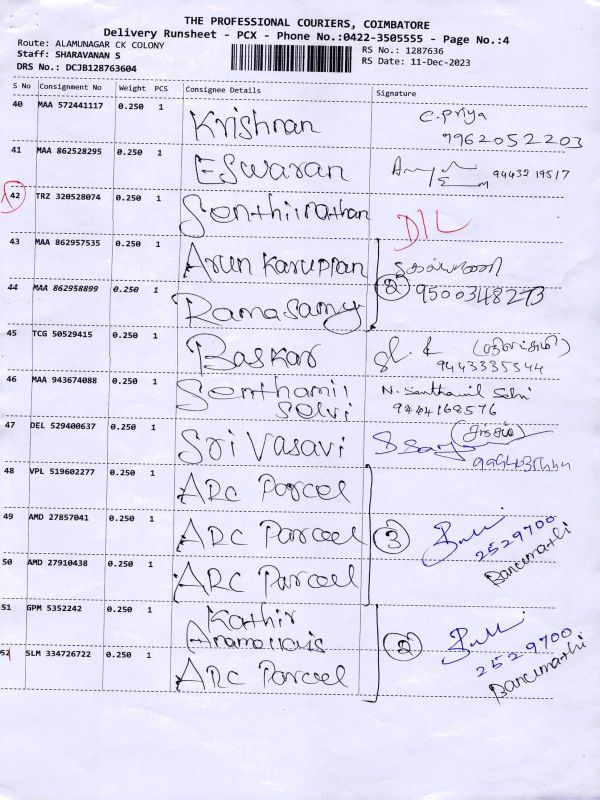 THE PROFESSIONAL COURIERS, COIMBATORE
Delivery Runsheet - PCX - Phone No.:0422-3505555 - Page No.:4
Route: ALAMUNAGAR CK COLONY RS No.: 1287636
Staff: SHARAVANAN S RS Date: 11-Dec-2023
DRS No.: DCJB128763604
S No Consignment No Weight PCS Consignee Details Signature
40 MAA 572441117 0.250 1 Krishnan C. Priya
9962052203
41 MAA 862528295 0.250 1 Eswaran 94432 19517
42 TRZ 320528074 0.250 1 Senthilnathan D/L
43 MAA 862957535 0.250 1 Arun Karuppan
44 MAA 862958899 0.250 1 Ramasamy 2 9500348273
45 TCG 50529415 0.250 1 Baskar
9443335544
46 MAA 943674088 0.250 1 Senthamil N. Senthamil Selvi
Selvi 9444168576
47 DEL 529400637 0.250 1 Sri Vasavi
48 VPL 519602277 0.250 1 ARC Parcel
49 AMD 27857041 0.250 1 ARC Parcel 3 2529700
Banumathi
50 AMD 27910438 0.250 1 ARC Parcel
51 GPM 5352242 0.250 1 Kathir
2 2529700
52 SLM 334726722 0.250 1 ARC Parcel Banumathi